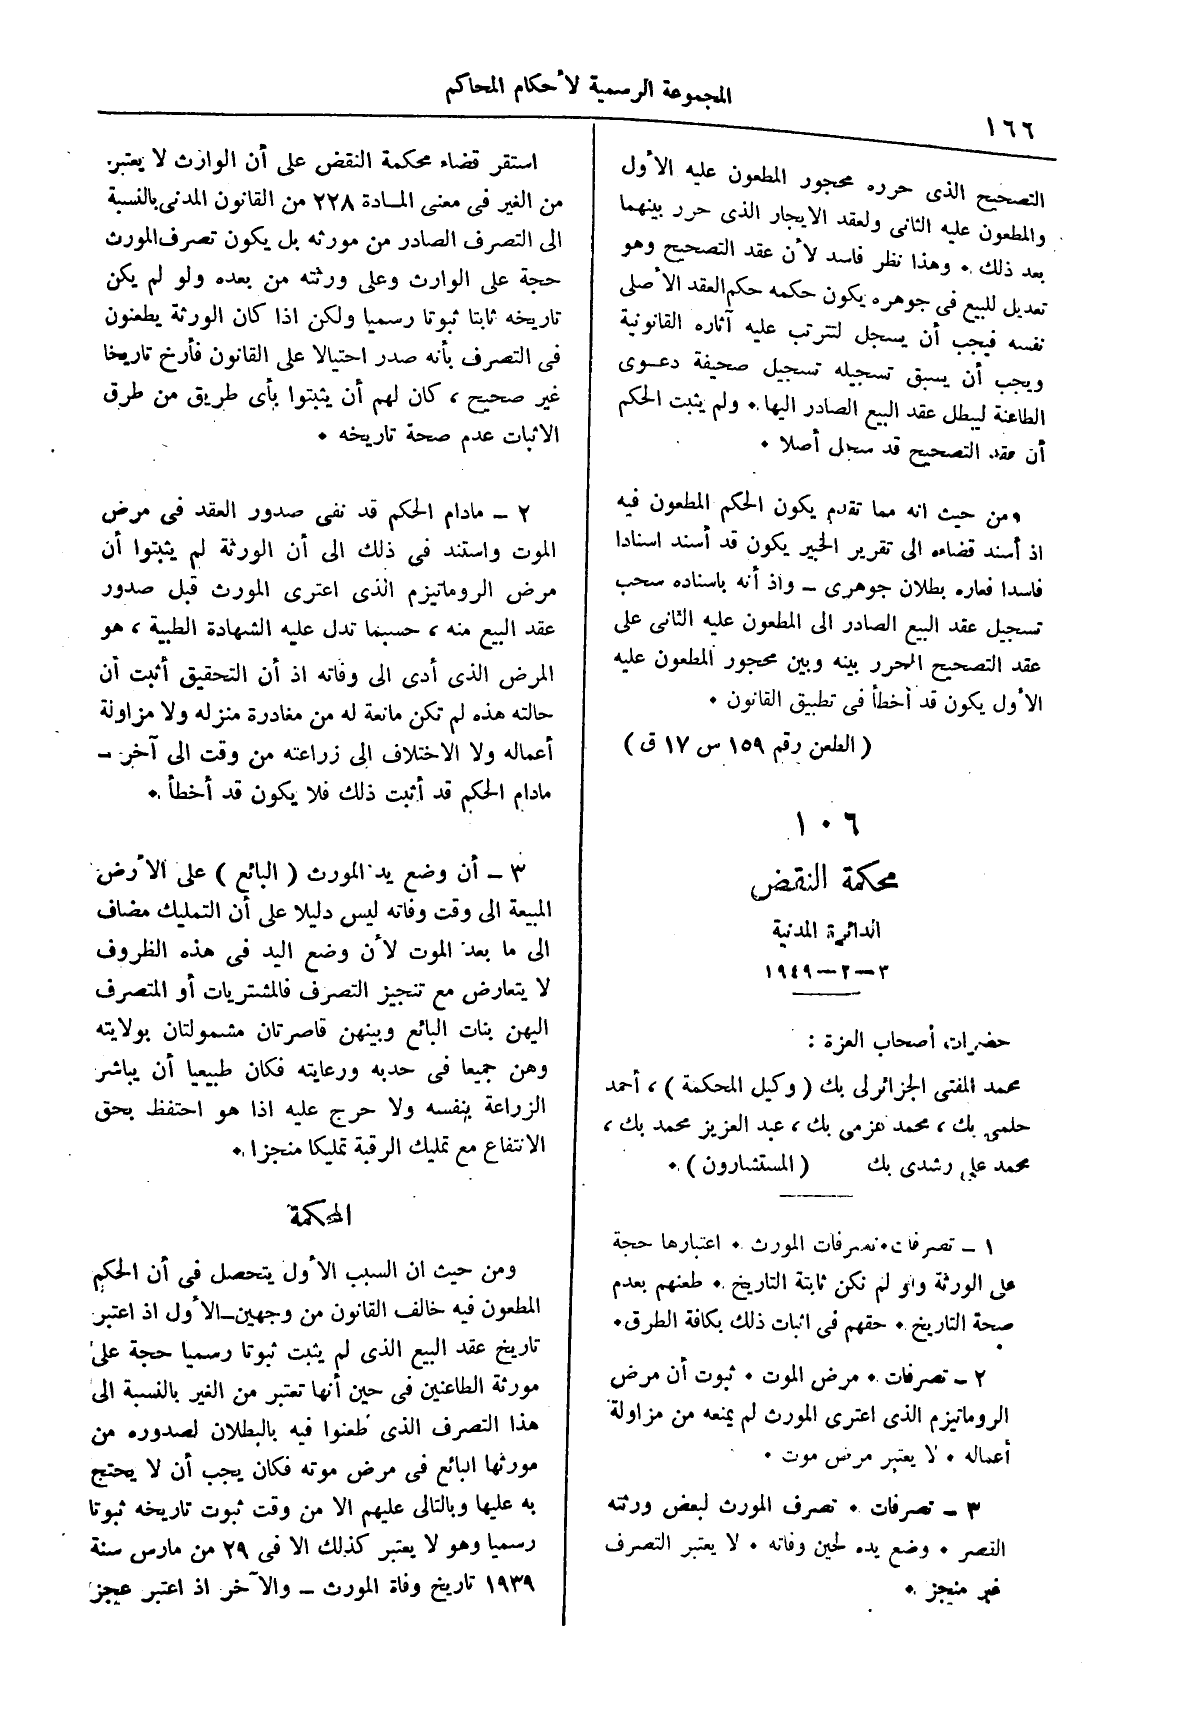 المجموعة الرسمية لأحكام المحاكم
١٦٦
التصحيح الذى حرره محجور المطعون عليه الأول
والمطعون عليه الثانى ولعقد الايجار الذى حرر بينهما
بعد ذلك . وهذا نظر فاسد لأن عقد التصحيح وهو
تعديل للبيع فى جوهره يكون حكمه حكم العقد الأصلى
نفسه فيجب أن يسجل لتترتب عليه آثاره القانونية
ويجب أن يسبق تسجيله تسجيل صحيفة دعوى
الطاعنة ليبطل عقد البيع الصادر اليها . ولم يثبت الحكم
أن عقد التصحيح قد سجل أصلا .
ومن حيث انه مما تقدم يكون الحكم المطعون فيه
اذ أسند قضاءه الى تقرير الخبير يكون قد أسند اسنادا
فاسدا فعاره بطلان جوهرى – واذ أنه باسناده سحب
تسجيل عقد البيع الصادر الى المطعون عليه الثانى على
عقد التصحيح المحرر بينه وبين محجور المطعون عليه
الأول يكون قد أخطأ فى تطبيق القانون .
( الطعن رقم ١٥٩ س ١٧ ق )
١٠٦
محكمة النقض
الدائرة المدنية
٣–٢–١٩٤٩
حضرات أصحاب العزة :
محمد المفتى الجزائرلى بك ( وكيل المحكمة ) ، أحمد
حلمى بك ، محمد عزمى بك ، عبد العزيز محمد بك ،
محمد على رشدى بك ( المستشارون ) .
١ – تصرفات . تصرفات المورث . اعتبارها حجة
على الورثة ولو لم تكن ثابتة التاريخ . طعنهم بعدم
صحة التاريخ . حقهم فى اثبات ذلك بكافة الطرق .
٢ – تصرفات . مرض الموت . ثبوت أن مرض
الروماتيزم الذى اعترى المورث لم يمنعه من مزاولة
أعماله . لا يعتبر مرض موت .
٣ – تصرفات . تصرف المورث لبعض ورثته
القصر . وضع يده لحين وفاته . لا يعتبر التصرف
غير منجز .
استقر قضاء محكمة النقض على أن الوارث لا يعتبر
من الغير فى معنى المادة ٢٢٨ من القانون المدنى بالنسبة
الى التصرف الصادر من مورثه بل يكون تصرف المورث
حجة على الوارث وعلى ورثته من بعده ولو لم يكن
تاريخه ثابتا ثبوتا رسميا ولكن اذا كان الورثة يطعنون
فى التصرف بأنه صدر احتيالا على القانون فأرخ تاريخا
غير صحيح ، كان لهم أن يثبتوا بأى طريق من طرق
الاثبات عدم صحة تاريخه .
٢ – مادام الحكم قد نفى صدور العقد فى مرض
الموت واستند فى ذلك الى أن الورثة لم يثبتوا أن
مرض الروماتيزم الذى اعترى المورث قبل صدور
عقد البيع منه ، حسبما تدل عليه الشهادة الطبية ، هو
المرض الذى أدى الى وفاته اذ أن التحقيق أثبت أن
حالته هذه لم تكن مانعة له من مغادرة منزله ولا مزاولة
أعماله ولا الاختلاف الى زراعته من وقت الى آخر –
مادام الحكم قد أثبت ذلك فلا يكون قد أخطأ .
٣ – أن وضع يد المورث ( البائع ) على الأرض
المبيعة الى وقت وفاته ليس دليلا على أن التمليك مضاف
الى ما بعد الموت لأن وضع اليد فى هذه الظروف
لا يتعارض مع تنجيز التصرف فالمشتريات أو المتصرف
اليهن بنات البائع وبينهن قاصرتان مشمولتان بولايته
وهن جميعا فى حدبه ورعايته فكان طبيعيا أن يباشر
الزراعة بنفسه ولا حرج عليه اذا هو احتفظ بحق
الانتفاع مع تمليك الرقبة تمليكا منجزا .
المحكمة
ومن حيث ان السبب الأول يتحصل فى أن الحكم
المطعون فيه خالف القانون من وجهين–الأول اذ اعتبر
تاريخ عقد البيع الذى لم يثبت ثبوتا رسميا حجة على
مورثة الطاعنين فى حين أنها تعتبر من الغير بالنسبة الى
هذا التصرف الذى طعنوا فيه بالبطلان لصدوره من
مورثها البائع فى مرض موته فكان يجب أن لا يحتج
به عليها وبالتالى عليهم الا من وقت ثبوت تاريخه ثبوتا
رسميا وهو لا يعتبر كذلك الا فى ٢٩ من مارس سنة
١٩٣٩ تاريخ وفاة المورث – والآخر اذ اعتبر عجز